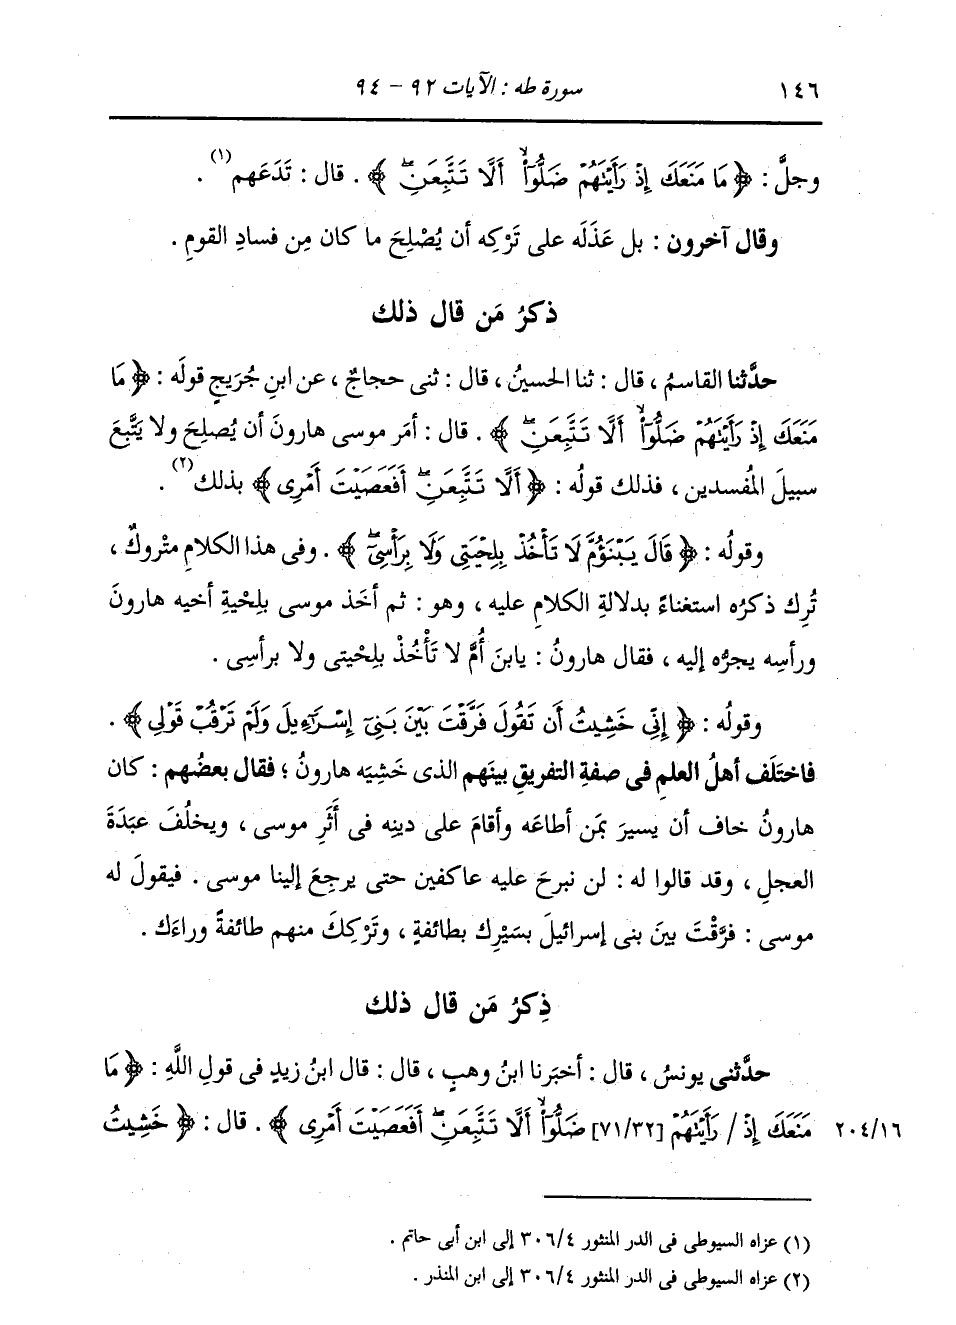 ١٤٦ سورة طه : الآيات ٩٢ - ٩٤
وجلَّ : ﴿ مَا مَنَعَكَ إِذْ رَأَيْنَهُمْ ضَلُّوٓا۟ ۙ أَلَّا تَتَّبِعَنِ ۖ ﴾ . قال : تَدَعَهم(١) .
وقال آخرون : بل عَذَلَه على تَرْكِه أن يُصْلِحَ ما كان مِن فسادِ القومِ .
ذكرُ مَن قال ذلك
حدَّثنا القاسمُ ، قال : ثنا الحسينُ ، قال : ثنى حجاجٌ ، عن ابنِ جُرَيجٍ قولَه : ﴿ مَا
مَنَعَكَ إِذْ رَأَيْنَهُمْ ضَلُّوٓا۟ ۙ أَلَّا تَتَّبِعَنِ ۖ ﴾ . قال : أمَر موسى هارونَ أن يُصلِحَ ولا يَتَّبِعَ
سبيلَ المُفسدين ، فذلك قولُه : ﴿ أَلَّا تَتَّبِعَنِ ۖ أَفَعَصَيْتَ أَمْرِى ﴾ بذلك(٢) .
وقولُه : ﴿ قَالَ يَبْنَؤُمَّ لَا تَأْخُذْ بِلِحْيَتِى وَلَا بِرَأْسِىٓ ۖ ﴾ . وفى هذا الكلامِ متْروكٌ ،
تُرِك ذكرُه استغناءً بدلالةِ الكلامِ عليه ، وهو : ثم أخَذ موسى بلِحْيةِ أخيه هارونَ
ورأسِه يجرُّه إليه ، فقال هارونُ : يابنَ أُمَّ لا تَأْخُذْ بلِحْيتى ولا برأسِى .
وقولُه : ﴿ إِنِّى خَشِيتُ أَن تَقُولَ فَرَّقْتَ بَيْنَ بَنِىٓ إِسْرَٰٓءِيلَ وَلَمْ تَرْقُبْ قَوْلِى ﴾ .
فاختَلَف أهلُ العلمِ فى صفةِ التفريقِ بينَهم الذى خَشِيَه هارونُ ؛ فقال بعضُهم : كان
هارونُ خاف أن يسيرَ بمَن أطاعَه وأقامَ على دينِه فى أَثَرِ موسى ، ويخلُفَ عبَدَةَ
العجلِ ، وقد قالوا له : لن نبرحَ عليه عاكفين حتى يرجِعَ إلينا موسى . فيقولَ له
موسى : فرَّقْتَ بينَ بنى إسرائيلَ بسَيْرِك بطائفةٍ ، وتَرْكِكَ منهم طائفةً وراءَك .
ذِكرُ مَن قال ذلك
حدَّثنى يونسُ ، قال : أخبَرنا ابنُ وهبٍ ، قال : قال ابنُ زيدٍ فى قولِ اللَّهِ : ﴿ مَا
٢٠٤/١٦ مَنَعَكَ إِذْ / رَأَيْنَهُمْ [٧١/٣٢] ضَلُّوٓا۟ ۙ أَلَّا تَتَّبِعَنِ ۖ أَفَعَصَيْتَ أَمْرِى ﴾ . قال : ﴿ خَشِيتُ
(١) عزاه السيوطى فى الدر المنثور ٣٠٦/٤ إلى ابن أبى حاتم .
(٢) عزاه السيوطى فى الدر المنثور ٣٠٦/٤ إلى ابن المنذر .